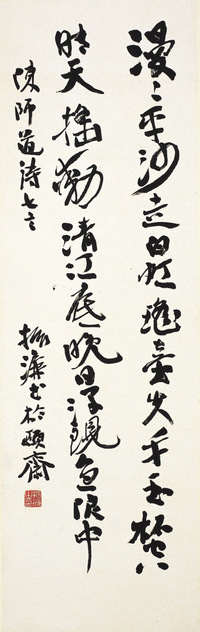 漫〻平沙走白虹瑤臺失手玉杯空
晴天搖動清江底晚日浮沉急浪中
陳師道詩七言 振濂書於頤齋